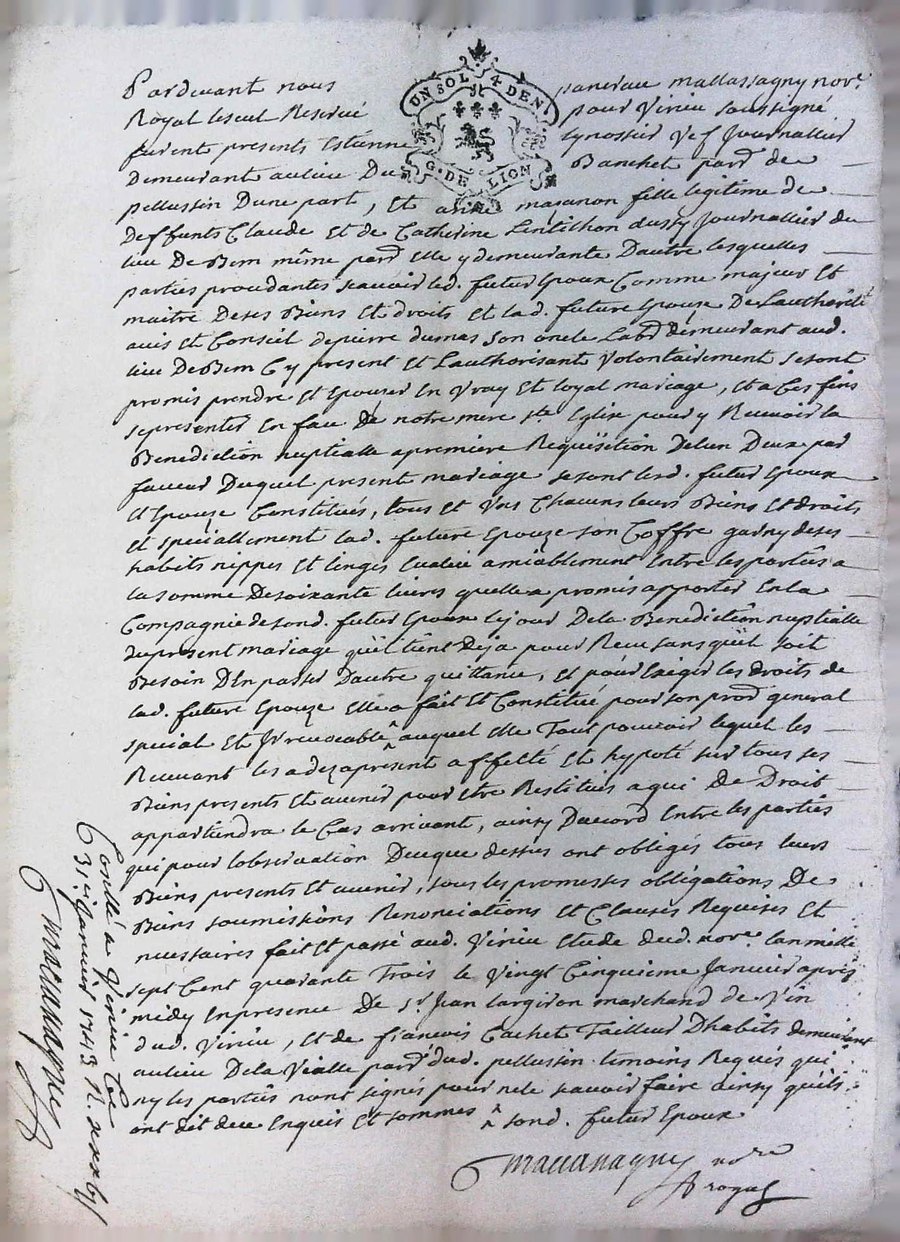 Pardevant nous
UN SOL 4 DEN
G. DE LION
pour Virieu soussigné
Royal Reservé
furent presents Estienne
Journallier
Demeurant au lieu Du Banchet par.se de
pellussin Dune part, Et anne fille legitime de
Deffunts Claude Et de Catherine Lentilhon aussy Journallier du
lieu De Bem même par.se elle y demeurante Dautre lesquelles
parties procedantes scavoir led. futur Epoux Comme majeur Et
maitre De ses Biens Et droits Et lad. future Epouze De Lauthorité
avis Et Conseil de pierre dumas son oncle Lab.r demeurant aud.
lieu De Bem Cy present Et Lauthorisant Volontairement se sont
promis prendre Et Epouser En Vray Et loyal mariage, Et a Ces fins
se presenter En face De notre mere S.te Eglise pour y Recevoir la
Benediction nuptialle a premiere Requisition De lun Deux par
faveur Duquel present mariage se sont lesd. futur Epoux
Et Epouze Constitués, tous Et Uns Chacuns leurs Biens Et droits
Et speciallement lad. future Epouze son Coffre garny de ses
habits nippes Et linges Evalué amiablement Entre les parties a
la somme De soixante livres quelle a promis apporter En la
Compagnie de sond. futur Epoux le jour De la Benediction nuptialle
du present mariage qu'il tient Deja pour Recu sans qu'il soit
Besoin D'En passer Dautre quittance, Et pour Exiger les droits de
lad. future Epouze Elle a fait Et Constitué pour son proc.r general
special Et Irrevocable ^ auquel Elle pouvoir lequel les
Recevant les a dez a present affecté Et hypoté sur tous ses
Biens presents Et avenir pour Etre Restitués a qui De Droit
appartiendra le Cas arrivant, ainsy Daccord Entre les parties
qui pour lobservation De ce que dessus ont obligés tous leurs
Biens presents Et avenir, sous les promesses obligations De
Biens soumissions Renonciations Et Clauses Requises Et
necessaires fait Et passé aud. Virieu Etude dud. no.re lan mille
sept Cent quarante Trois le Vingt Cinquieme Janvier apres
midy En presence De S.r Jean largiron marchand de Vin
dud. Virieu, Et de francois Cachet Tailleur Dhabits demeurant
au lieu De la Vialle par.se dud. pellussin temoins Requis qui
ny les parties nont signés pour ne le scavoir faire ainsy qu'ils
ont dit de ce Enquis Et sommés ^ sond. futur Epoux
no.re
Royal
a Virieu
31.e Janvier 1743 R.